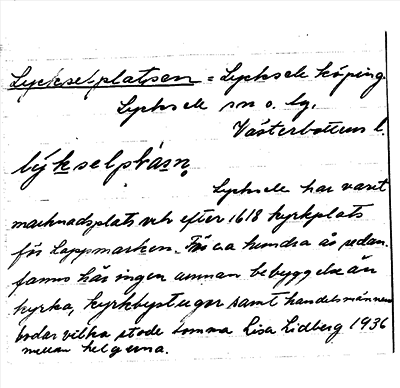 Lycksel-platsen = Lycksele köping.
Lycksele sn o. lg.
Västerbottens l.
lýkselplásn.
Lycksele har varit
marknadsplats och efter 1618 kyrkplats
för Lappmarken. För ca hundra år sedan
fanns här ingen annan bebyggelse än
kyrka, kyrkbystugor samt handelsmännens
bodar vilka stodo tomma Lisa Lidberg 1936
mellan helgerna.